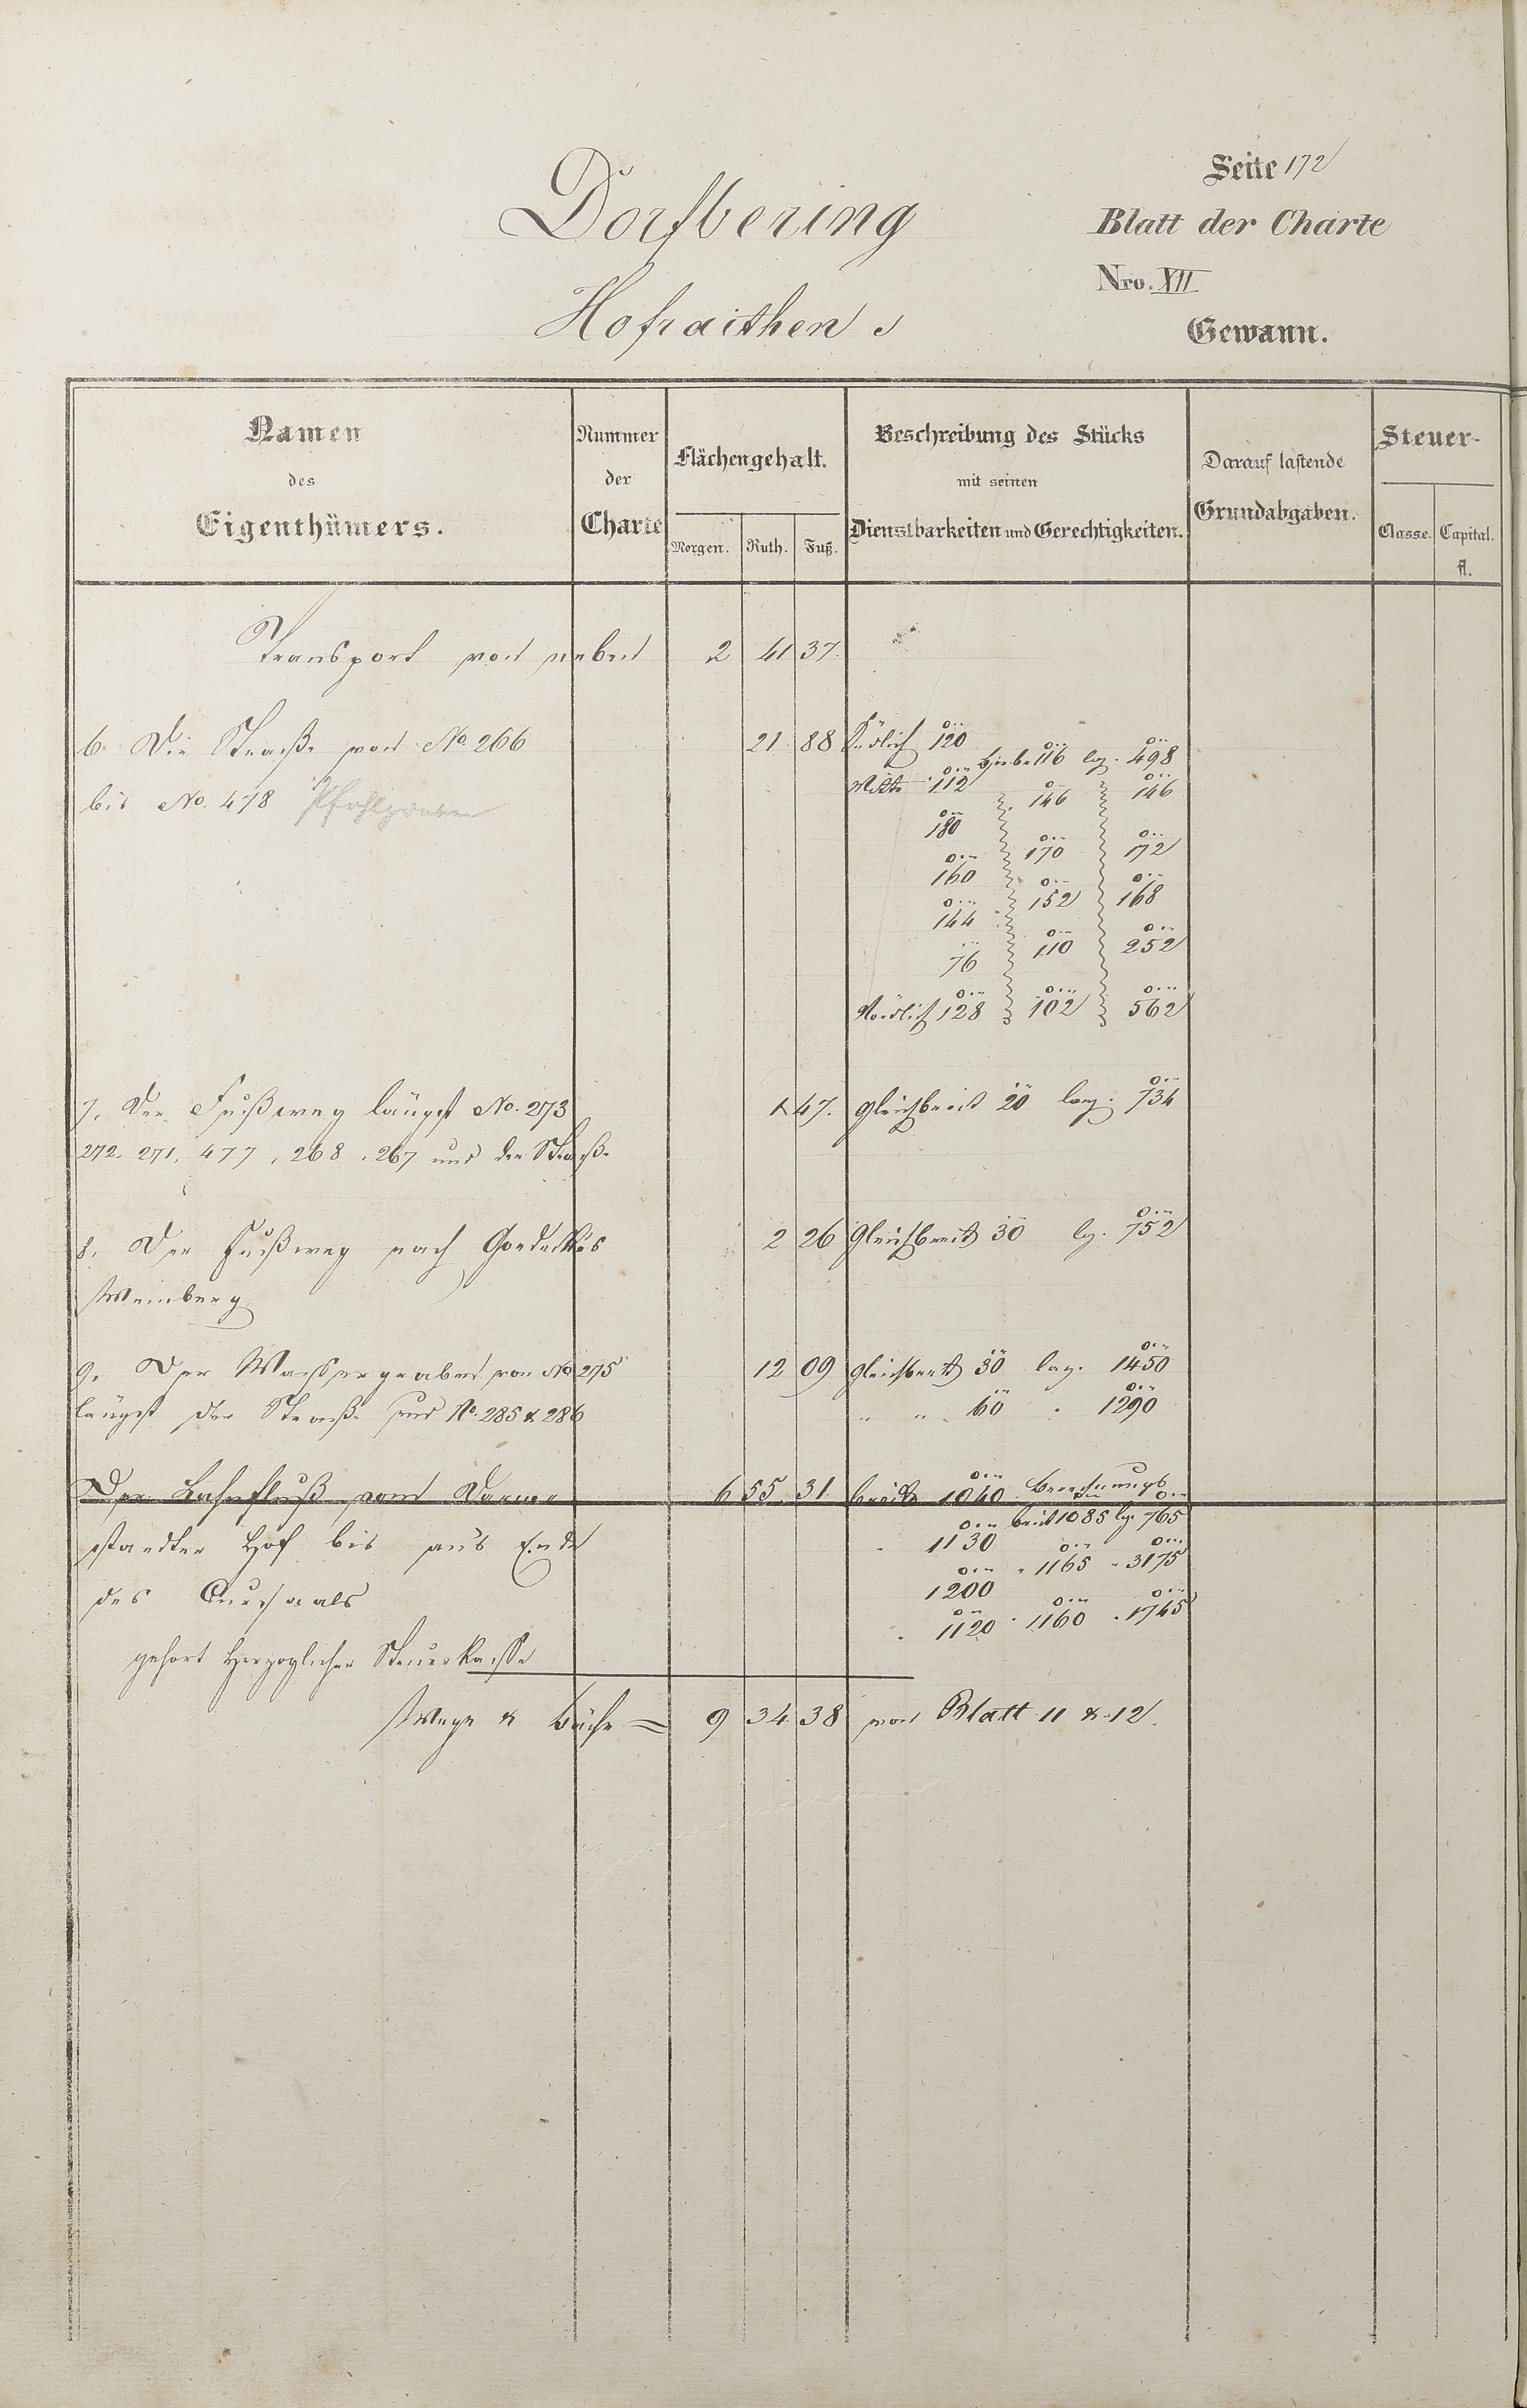 Seite 172
Dorfbering
Blatt der Charte
Nro. XII
Hofraithen
Gewann.
Namen des Eigenthümers.
Nummer der Charte
Flächengehalt.
Morgen. Ruth. Fuß.
Beschreibung des Stücks mit seinen Dienstbarkeiten und Gerechtigkeiten.
Darauf lastende Grundabgaben.
Steuer-
Classe. Capital. fl.
Transport von neben 2 41 37.
6. Die Straße von No. 266 21 88 Südlich 120
Mitte 112 116 lg. 498
bis No. 478 Pfahlgraben 146 146
180
170 172
160
152 168
144
110 252
76
Nördlich 128 102 562
7. Der Fußweg längst No. 273 1 47. gleichbreit 20 lang. 734
272. 271. 477, 268, 267 und der Straße
8. Der Fußweg nach 2 26 Gleichbreit 30 lg. 752
Weinberg
9. Der Wassergraben von No 275 12 09 gleichbreit 30 lang. 1450
längst der Straße und No. 285 & 286 " " 60 " 1290
Der Lahnfluß vom Darm 6 55. 31. breite 1040 Berechnungs
breit 1085 lg. 765
staedter Hof bis ans Ende " 1130
" 1165 " 3175
des Cursaals 1200
" 1120 " 1160 " 1745
gehört Herzoglicher Steuerkasse
Wege & Bäche = 9 34 38 von Blatt 11 & 12.